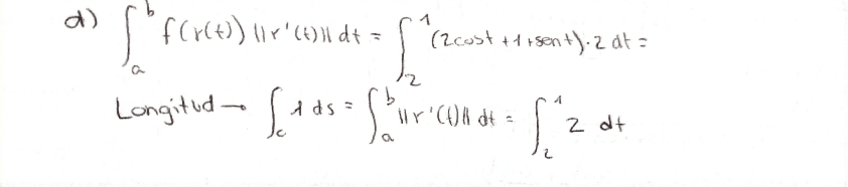 d) ∫_a^b f(r(t)) ||r'(t)|| dt = ∫_2^1 (2cost + 1 + sent)·2 dt =
Longitud → ∫_c 1 ds = ∫_a^b ||r'(t)|| dt = ∫_2^1 2 dt